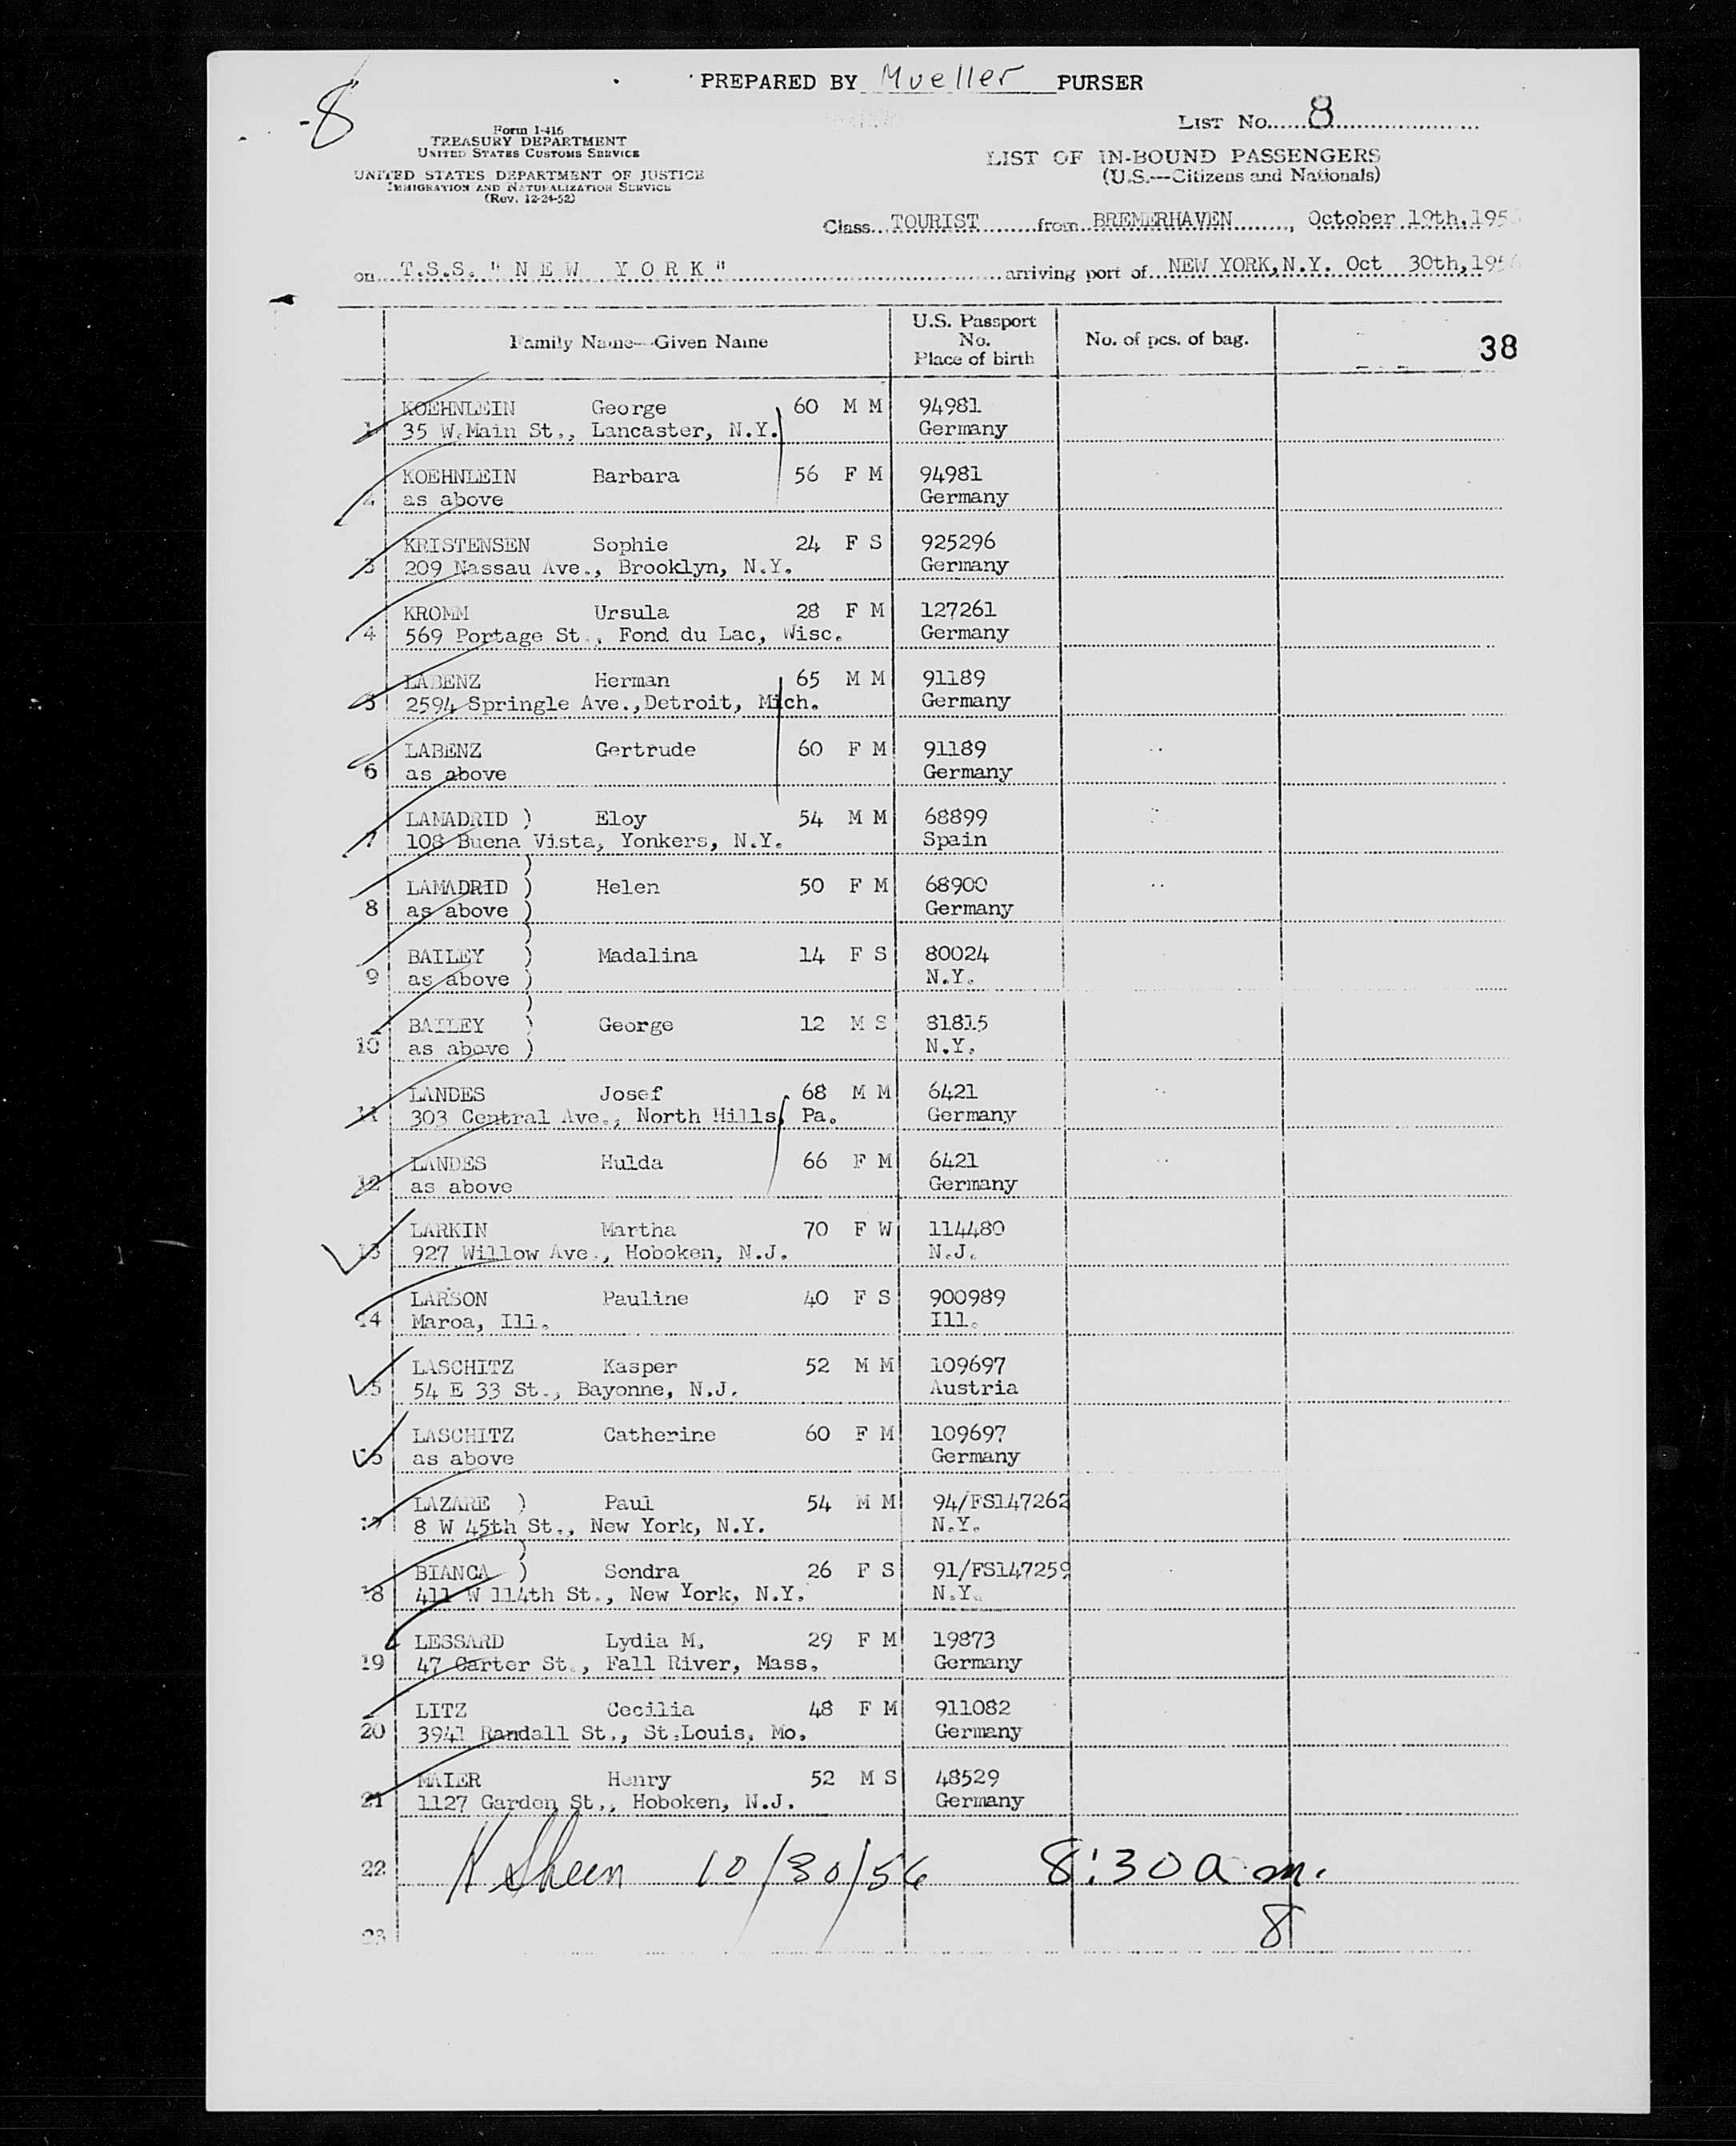 PREPARED BY Mueller PURSER
-8
List No. 8
Form I-416
TREASURY DEPARTMENT
UNITED STATES CUSTOMS SERVICE
UNITED STATES DEPARTMENT OF JUSTICE
IMMIGRATION AND NATURALIZATION SERVICE
(Rev. 12-24-52)
LIST OF IN-BOUND PASSENGERS
(U.S.—Citizens and Nationals)
Class TOURIST from BREMERHAVEN, October 19th, 195
on T.S.S. "NEW YORK" arriving port of NEW YORK, N.Y. Oct 30th, 1956
Family Name—Given Name U.S. Passport No. Place of birth No. of pcs. of bag. 38
1 KOEHNLEIN George 60 M M 94981
35 W.Main St., Lancaster, N.Y. Germany
2 KOEHNLEIN Barbara 56 F M 94981
as above Germany
3 KRISTENSEN Sophie 24 F S 925296
209 Nassau Ave., Brooklyn, N.Y. Germany
4 KROMM Ursula 28 F M 127261
569 Portage St., Fond du Lac, Wisc. Germany
5 LABENZ Herman 65 M M 91189
2594 Springle Ave.,Detroit, Mich. Germany
6 LABENZ Gertrude 60 F M 91189
as above Germany
7 LAMADRID ) Eloy 54 M M 68899
108 Buena Vista, Yonkers, N.Y. Spain
8 LAMADRID ) Helen 50 F M 68900
as above ) Germany
9 BAILEY ) Madalina 14 F S 80024
as above ) N.Y.
10 BAILEY ) George 12 M S 81815
as above ) N.Y.
11 LANDES Josef 68 M M 6421
303 Central Ave., North Hills, Pa. Germany
12 LANDES Hulda 66 F M 6421
as above Germany
13 LARKIN Martha 70 F W 114480
927 Willow Ave., Hoboken, N.J. N.J.
14 LARSON Pauline 40 F S 900989
Maroa, Ill. Ill.
15 LASCHITZ Kasper 52 M M 109697
54 E 33 St., Bayonne, N.J. Austria
16 LASCHITZ Catherine 60 F M 109697
as above Germany
17 LAZARE ) Paul 54 M M 94/FS147262
8 W 45th St., New York, N.Y. N.Y.
18 BIANCA ) Sondra 26 F S 91/FS147259
411 W 114th St., New York, N.Y. N.Y.
19 LESSARD Lydia M. 29 F M 19873
47 Carter St., Fall River, Mass. Germany
20 LITZ Cecilia 48 F M 911082
3941 Randall St., St.Louis, Mo. Germany
21 MAIER Henry 52 M S 48529
1127 Garden St., Hoboken, N.J. Germany
22 K Sheen 10/30/56 8:30 a.m.
23 8